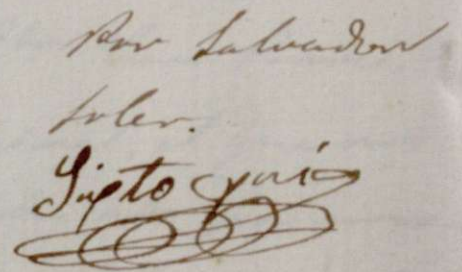 Por Salvador
Soler.
Sixto